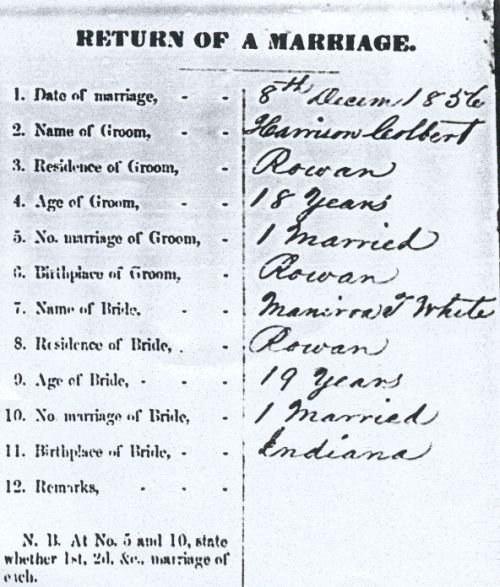 RETURN OF A MARRIAGE.
1. Date of marriage, - - 8th Decem 1856
2. Name of Groom, - - Harrison Colbert
3. Residence of Groom, - Rowan
4. Age of Groom, - - 18 Years
5. No. marriage of Groom, - 1 Married
6. Birthplace of Groom, - Rowan
7. Name of Bride, - - White
8. Residence of Bride, . - Rowan
9. Age of Bride, - - - 19 Years
10. No. marriage of Bride, - 1 Married
11. Birthplace of Bride, - - Indiana
12. Remarks, - - -
N. B. At No. 5 and 10, state
whether 1st, 2d, &c., marriage of
each.